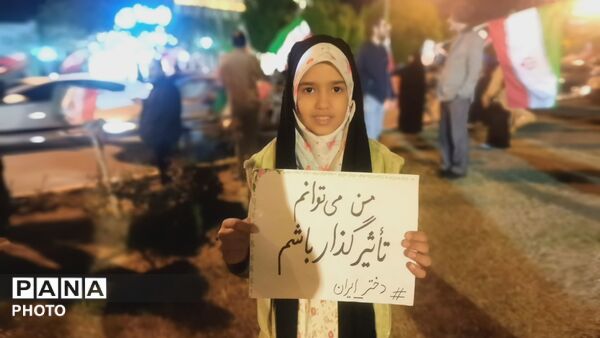 من می‌توانم
تأثیرگذار باشم
#دختر_ایران
PANA
PHOTO